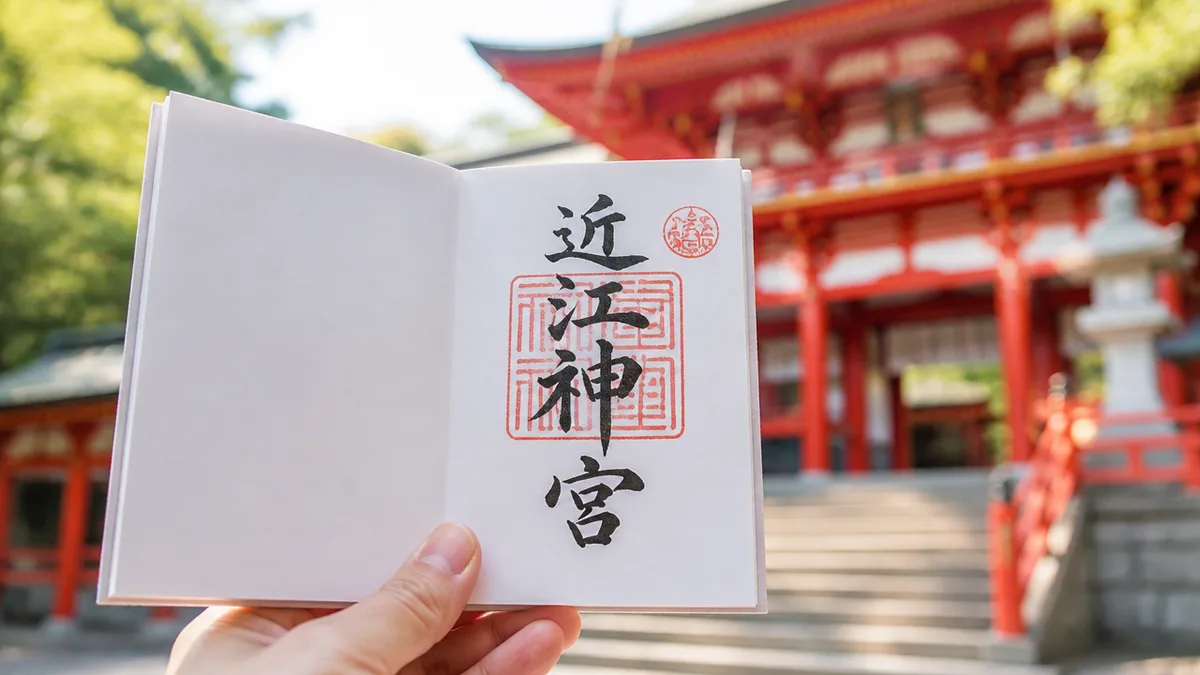 近江神宮